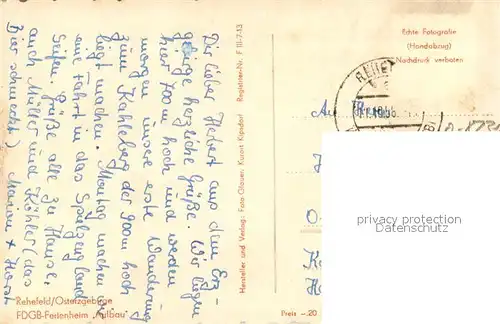 Dir lieber Herbert aus dem Erz-
gebirge herzliche Grüße. Wir liegen
hier 700 m hoch und werden
morgen unsere erste Wanderung
zum Kahleberg der 900 m hoch
liegt machen. Montag machen wir
eine Fahrt in das Spielzeugland
Seifen. Grüße alle zu Hause.
auch Müller und Köhler (das
Bier schmeckt) Marian + Horst
Rehefeld/Osterzgebirge
FDGB-Ferienheim „Aufbau“
Hersteller und Verlag: Foto Olauen Kurort Kipsdorf Registrier-Nr. F III-7-13
Echte Fotografie
(Handabzug)
Nachdruck verboten
REHE
An
Preis -.20
privacy protection
watermark